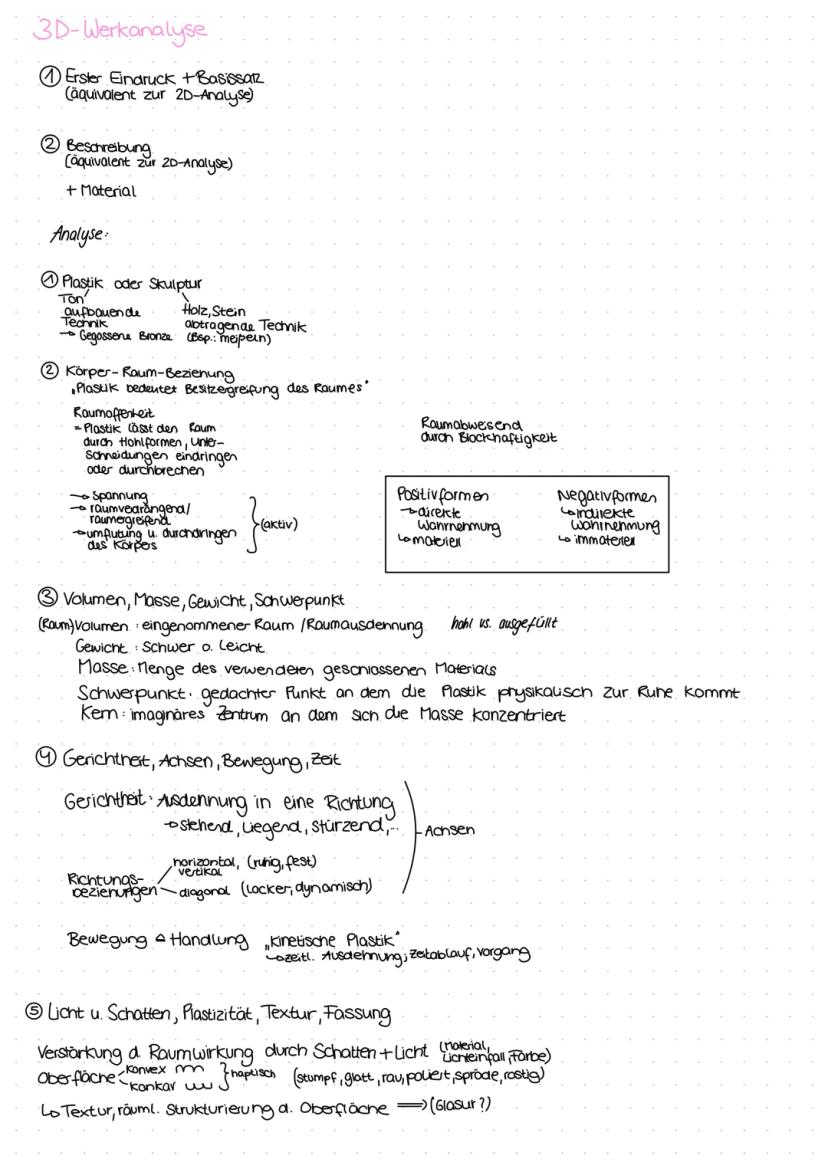 3D-Werkanalyse
① Erster Eindruck + Basissatz
(äquivalent zur 2D-Analyse)
② Beschreibung
(äquivalent zur 2D-Analyse)
+ Material
Analyse:
① Plastik oder Skulptur
Ton
aufbauende
Technik
→ Gegossene Bronze
Holz, Stein
abtragende Technik
(Bsp.: meißeln)
② Körper-Raum-Beziehung
„Plastik bedeutet Besitzergreifung des Raumes"
Raumoffenheit
= Plastik lässt den Raum
durch Hohlformen, Unter-
schneidungen eindringen
oder durchbrechen
Raumabweisend
durch Blockhaftigkeit
→ Spannung
→ raumverdrängend/
raumgreifend
→ umflutung u. durchdringen
des Körpers
(aktiv)
Positivformen
→ direkte
Wahrnehmung
↳ materiell
Negativformen
↳ indirekte
Wahrnehmung
↳ immateriell
③ Volumen, Masse, Gewicht, Schwerpunkt
(Raum)Volumen : eingenommener Raum / Raumausdehnung hohl vs. ausgefüllt
Gewicht : Schwer o. Leicht
Masse : Menge des verwendeten geschlossenen Materials
Schwerpunkt : gedachter Punkt an dem die Plastik physikalisch zur Ruhe kommt
Kern : imaginäres Zentrum an dem sich die Masse konzentriert
④ Gerichtheit, Achsen, Bewegung, Zeit
Gerichtheit : Ausdehnung in eine Richtung
→ stehend, Liegend, stürzend,..
Achsen
Richtungs-
beziehungen
horizontal, (ruhig, fest)
vertikal
diagonal (locker, dynamisch)
Bewegung ≙ Handlung „kinetische Plastik"
↳ zeitl. Ausdehnung; Zeitablauf, Vorgang
⑤ Licht u. Schatten, Plastizität, Textur, Fassung
Verstärkung d. Raumwirkung durch Schatten + Licht (Material,
Lichteinfall, Farbe)
Oberfläche
konvex
konkav
} haptisch (stumpf, glatt, rau, poliert, spröde, rostig)
↳ Textur, räuml. Strukturierung d. Oberfläche ⟹ (Glasur?)